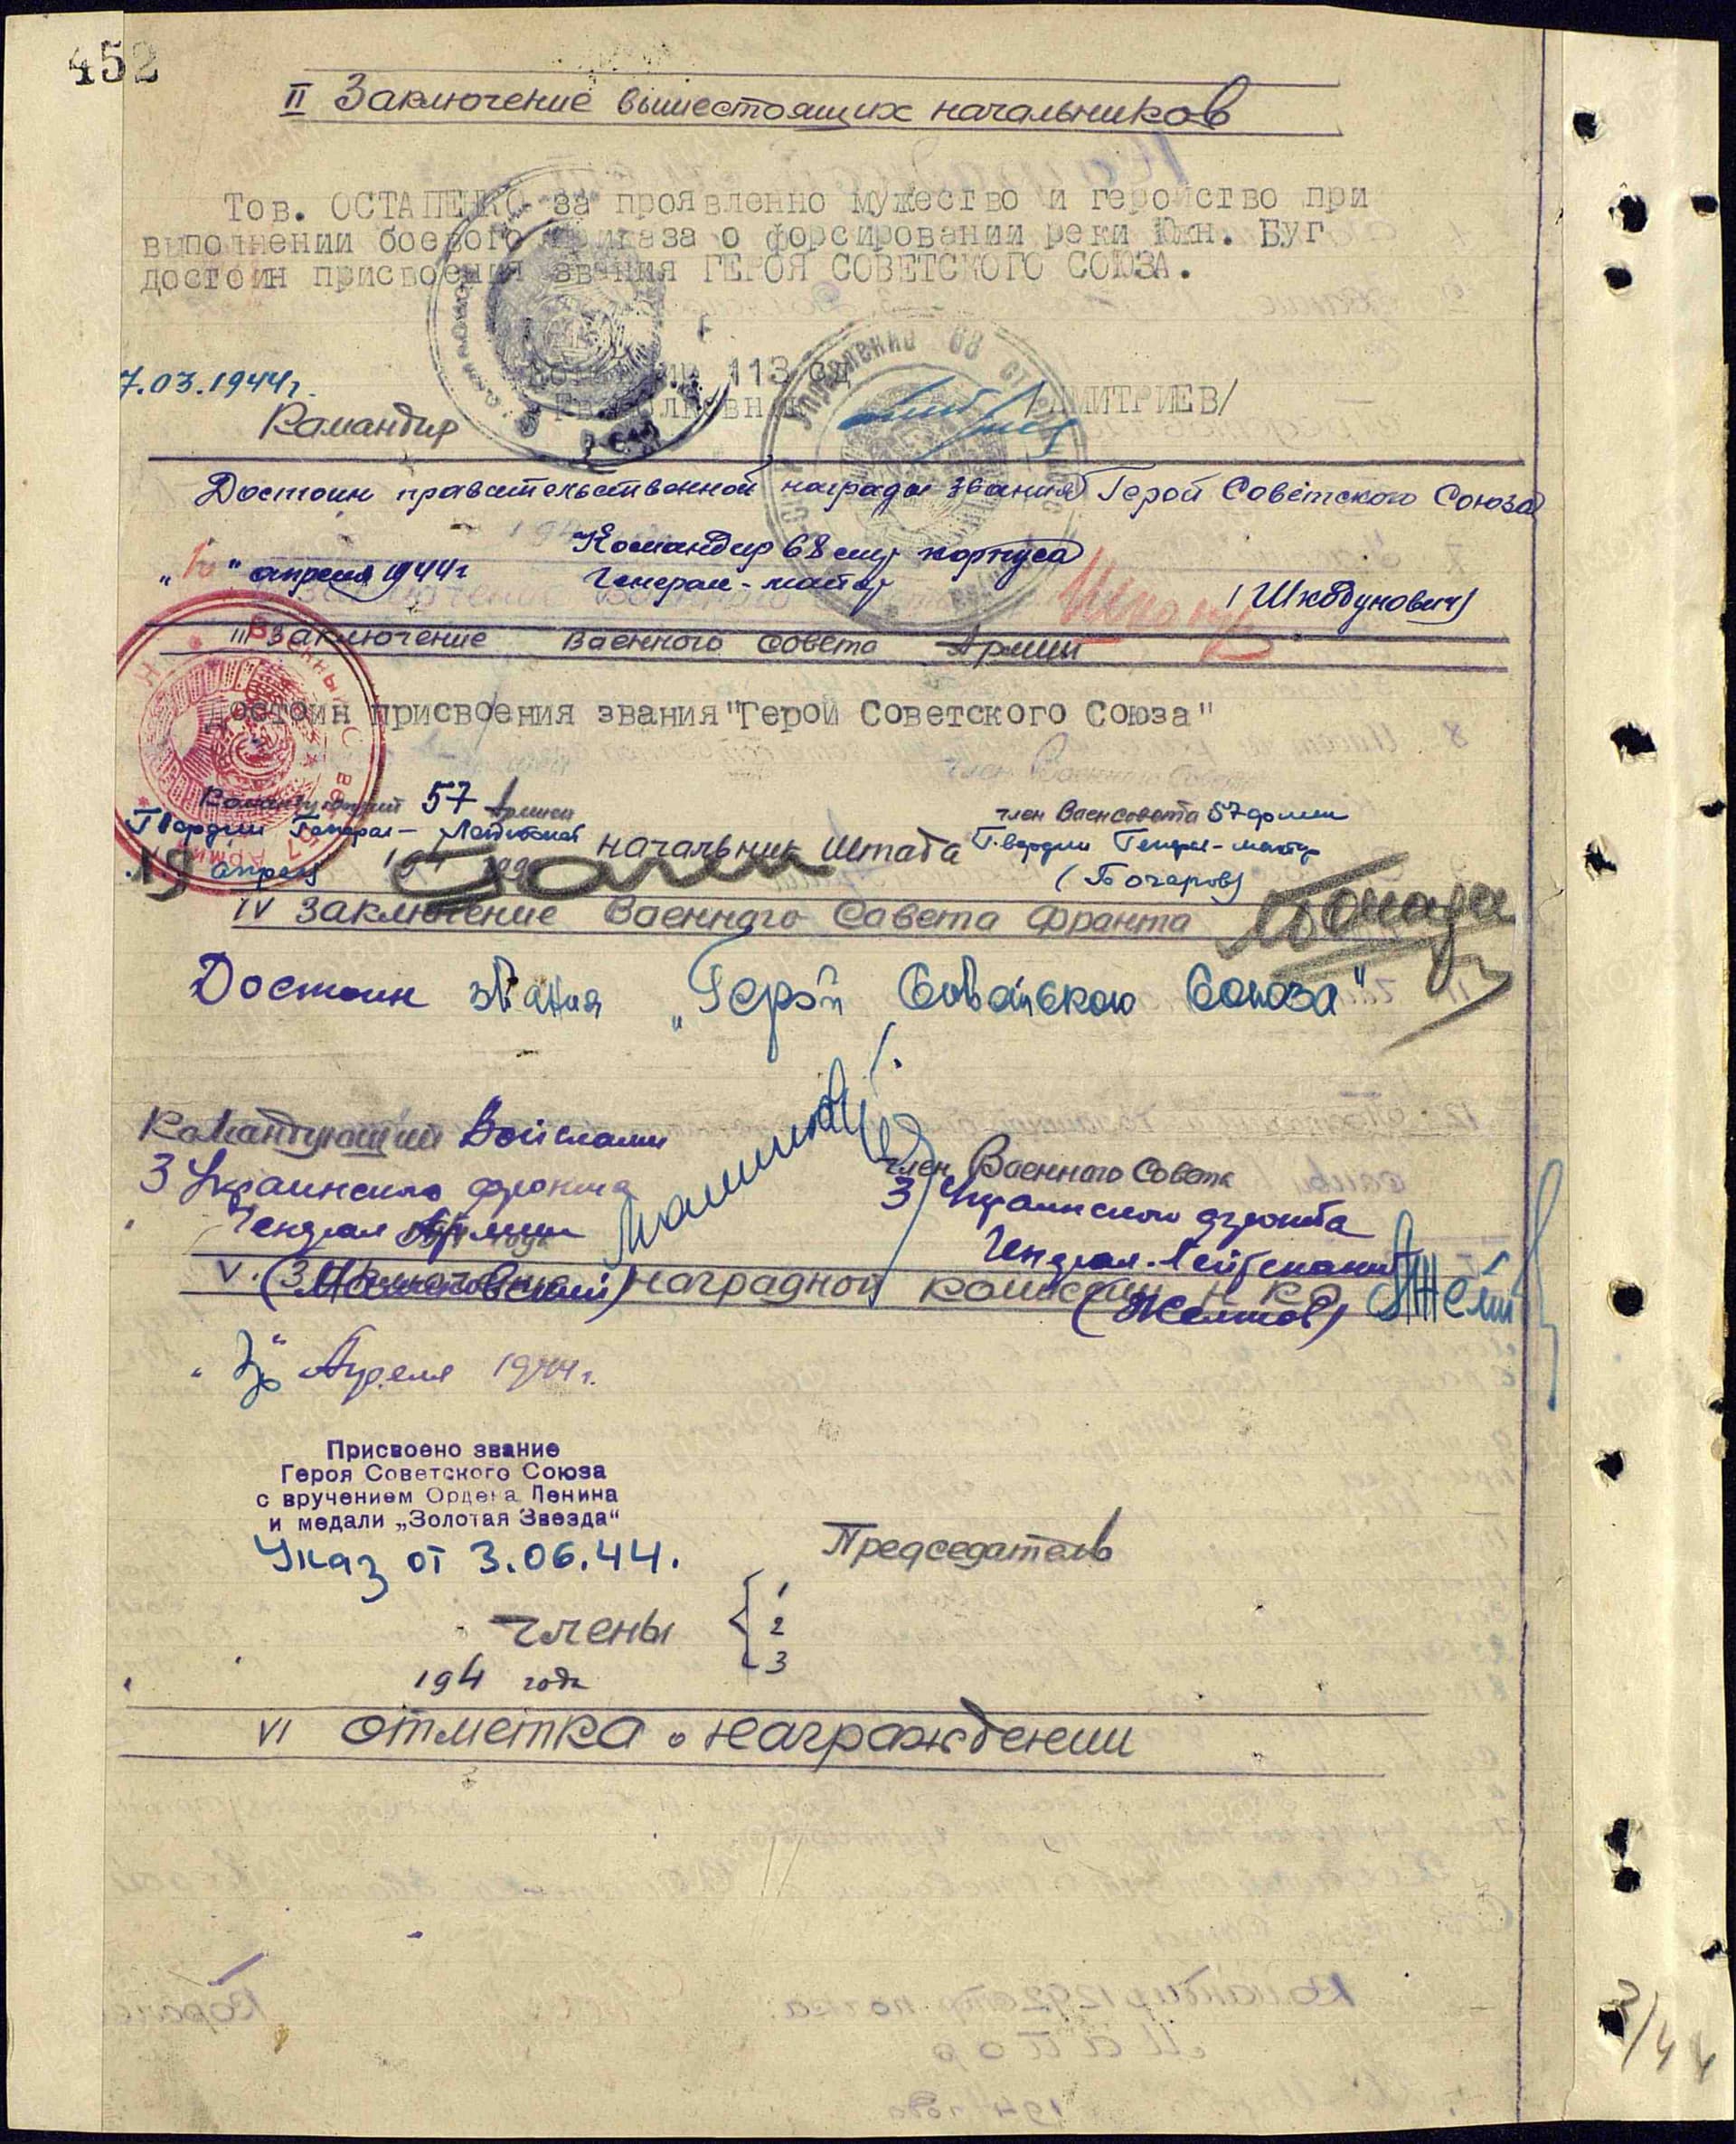 452
II Заключение вышестоящих начальников
Тов. ОСТАПЕНКО за проявленно мужество и геройство при
выполнении боевого приказа о форсировании реки Южн. Буг
достоин присвоения звания ГЕРОЯ СОВЕТСКОГО СОЮЗА.
113 сд
7.03.1944г.
/ДМИТРИЕВ/
Командир
Достоин правительственной награды звания Герой Советского Союза
Командир 68 стр корпуса
" " апреля 1944г Генерал-майор /Шкодунович/
III Заключение Военного Совета Армии
Достоин присвоения звания "Герой Советского Союза"
Командующий 57 Армии
Гвардии Генерал-Лейтенант
начальник штаба
член Военсовета 57 армии
Гвардии Генерал-майор
(Бочаров)
19 апреля 194
IV Заключение Военного Совета Фронта
Достоин звания „Герой Советского Союза"
Командующий Войсками
3 Украинского фронта
Генерал Армии
(Малиновский)
член Военного Совета
3 Украинского фронта
Генерал-Лейтенант
(Желтов)
V. Заключение наградной комиссии НКО
" " Апреля 1944г.
Присвоено звание
Героя Советского Союза
с вручением Ордена Ленина
и медали „Золотая Звезда"
Указ от 3.06.44.
Председатель
Члены { 1
2
3
194 года
VI отметка о награждении
3/44